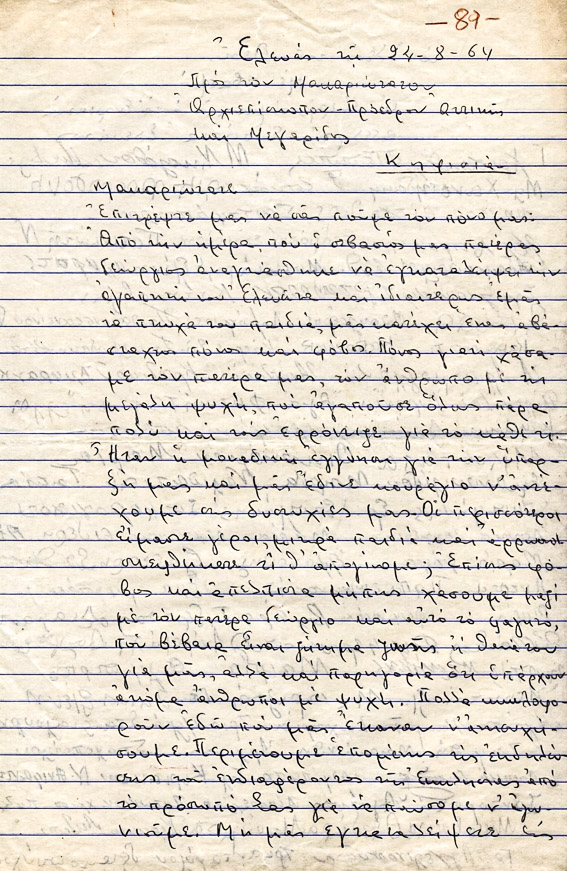 -89-
Ἐλευσίς τῇ 24-8-64
Πρός τόν Μακαριώτατον
Ἀρχιεπίσκοπον-Πρόεδρον Ἀττικῆς
καί Μεγαρίδος
Κηφισιά
Μακαριώτατε
Ἐπιτρέψτε μας νά σᾶς ποῦμε τόν πόνο μας.
Ἀπό τήν ἡμέρα πού ὁ σεβαστός μας πατέρας
Γεώργιος ἀναγκάσθηκε νά ἐγκαταλείψει τήν
ἀγαπητή του Ἐλευσῖνα καί ἰδιαιτέρως ἐμᾶς
τά πτωχά του παιδιά, μᾶς κατέχει ἕνας ἀβά-
σταχτος πόνος καί φόβος. Πόνος γιατί χάσα-
με τόν πατέρα μας, τόν ἄνθρωπο μέ τή
μεγάλη ψυχή, πού ἀγαποῦσε ὅλους πάρα
πολύ καί τούς ἐφρόντιζε γιά τό κάθε τί.
Ἦταν ἡ μοναδική ἐγγύηση γιά τήν ὕπαρ-
ξή μας καί μᾶς ἔδινε κουράγιο ν' ἀντέ-
χουμε στίς δυστυχίες μας. Οἱ περισσότεροι
εἴμαστε γέροι, μικρά παιδιά καί ἄρρωστοι
σκεφθήκατε τί θ' ἀπογίνομε; Ἐπίσης φό-
βος καί ἀπελπισία μήπως χάσουμε μαζί
μέ τόν πατέρα Γεώργιο καί αὐτό τό φαγητό,
πού βέβαια εἶναι ζήτημα ζωῆς ἤ θανάτου
γιά μᾶς, ἀλλά καί παρηγοριά ὅτι ὑπάρχουν
ἀκόμα ἄνθρωποι μέ ψυχή. Πολλά κυκλοφο-
ροῦν ἐδῶ πού μᾶς ἔκαναν ν' ἀνησυχή-
σουμε. Περιμένουμε ἑπομένως τίς ἐκδηλώ-
σεις τοῦ ἐνδιαφέροντος τῆς Ἐκκλησίας ἀπό
τό πρόσωπό Σας γιά νά παύσομε ν' ἀγω-
νιοῦμε. Μή μᾶς ἐγκαταλείψετε εἰς